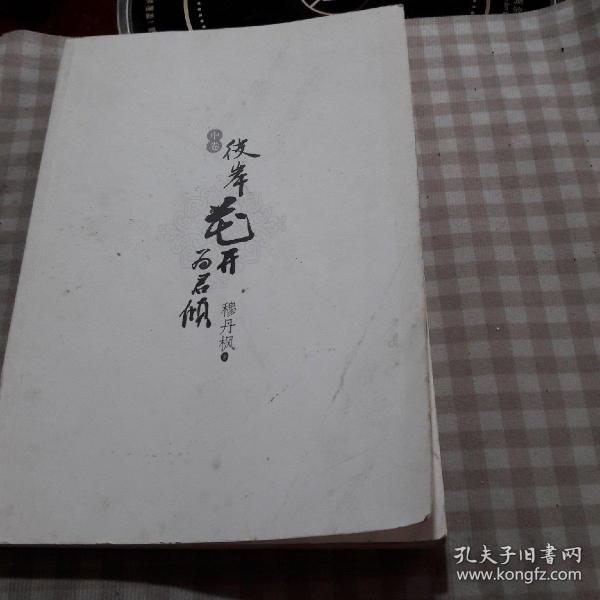 中卷
彼岸
花开
为君倾
穆丹枫
孔夫子旧书网
www.kongfz.com